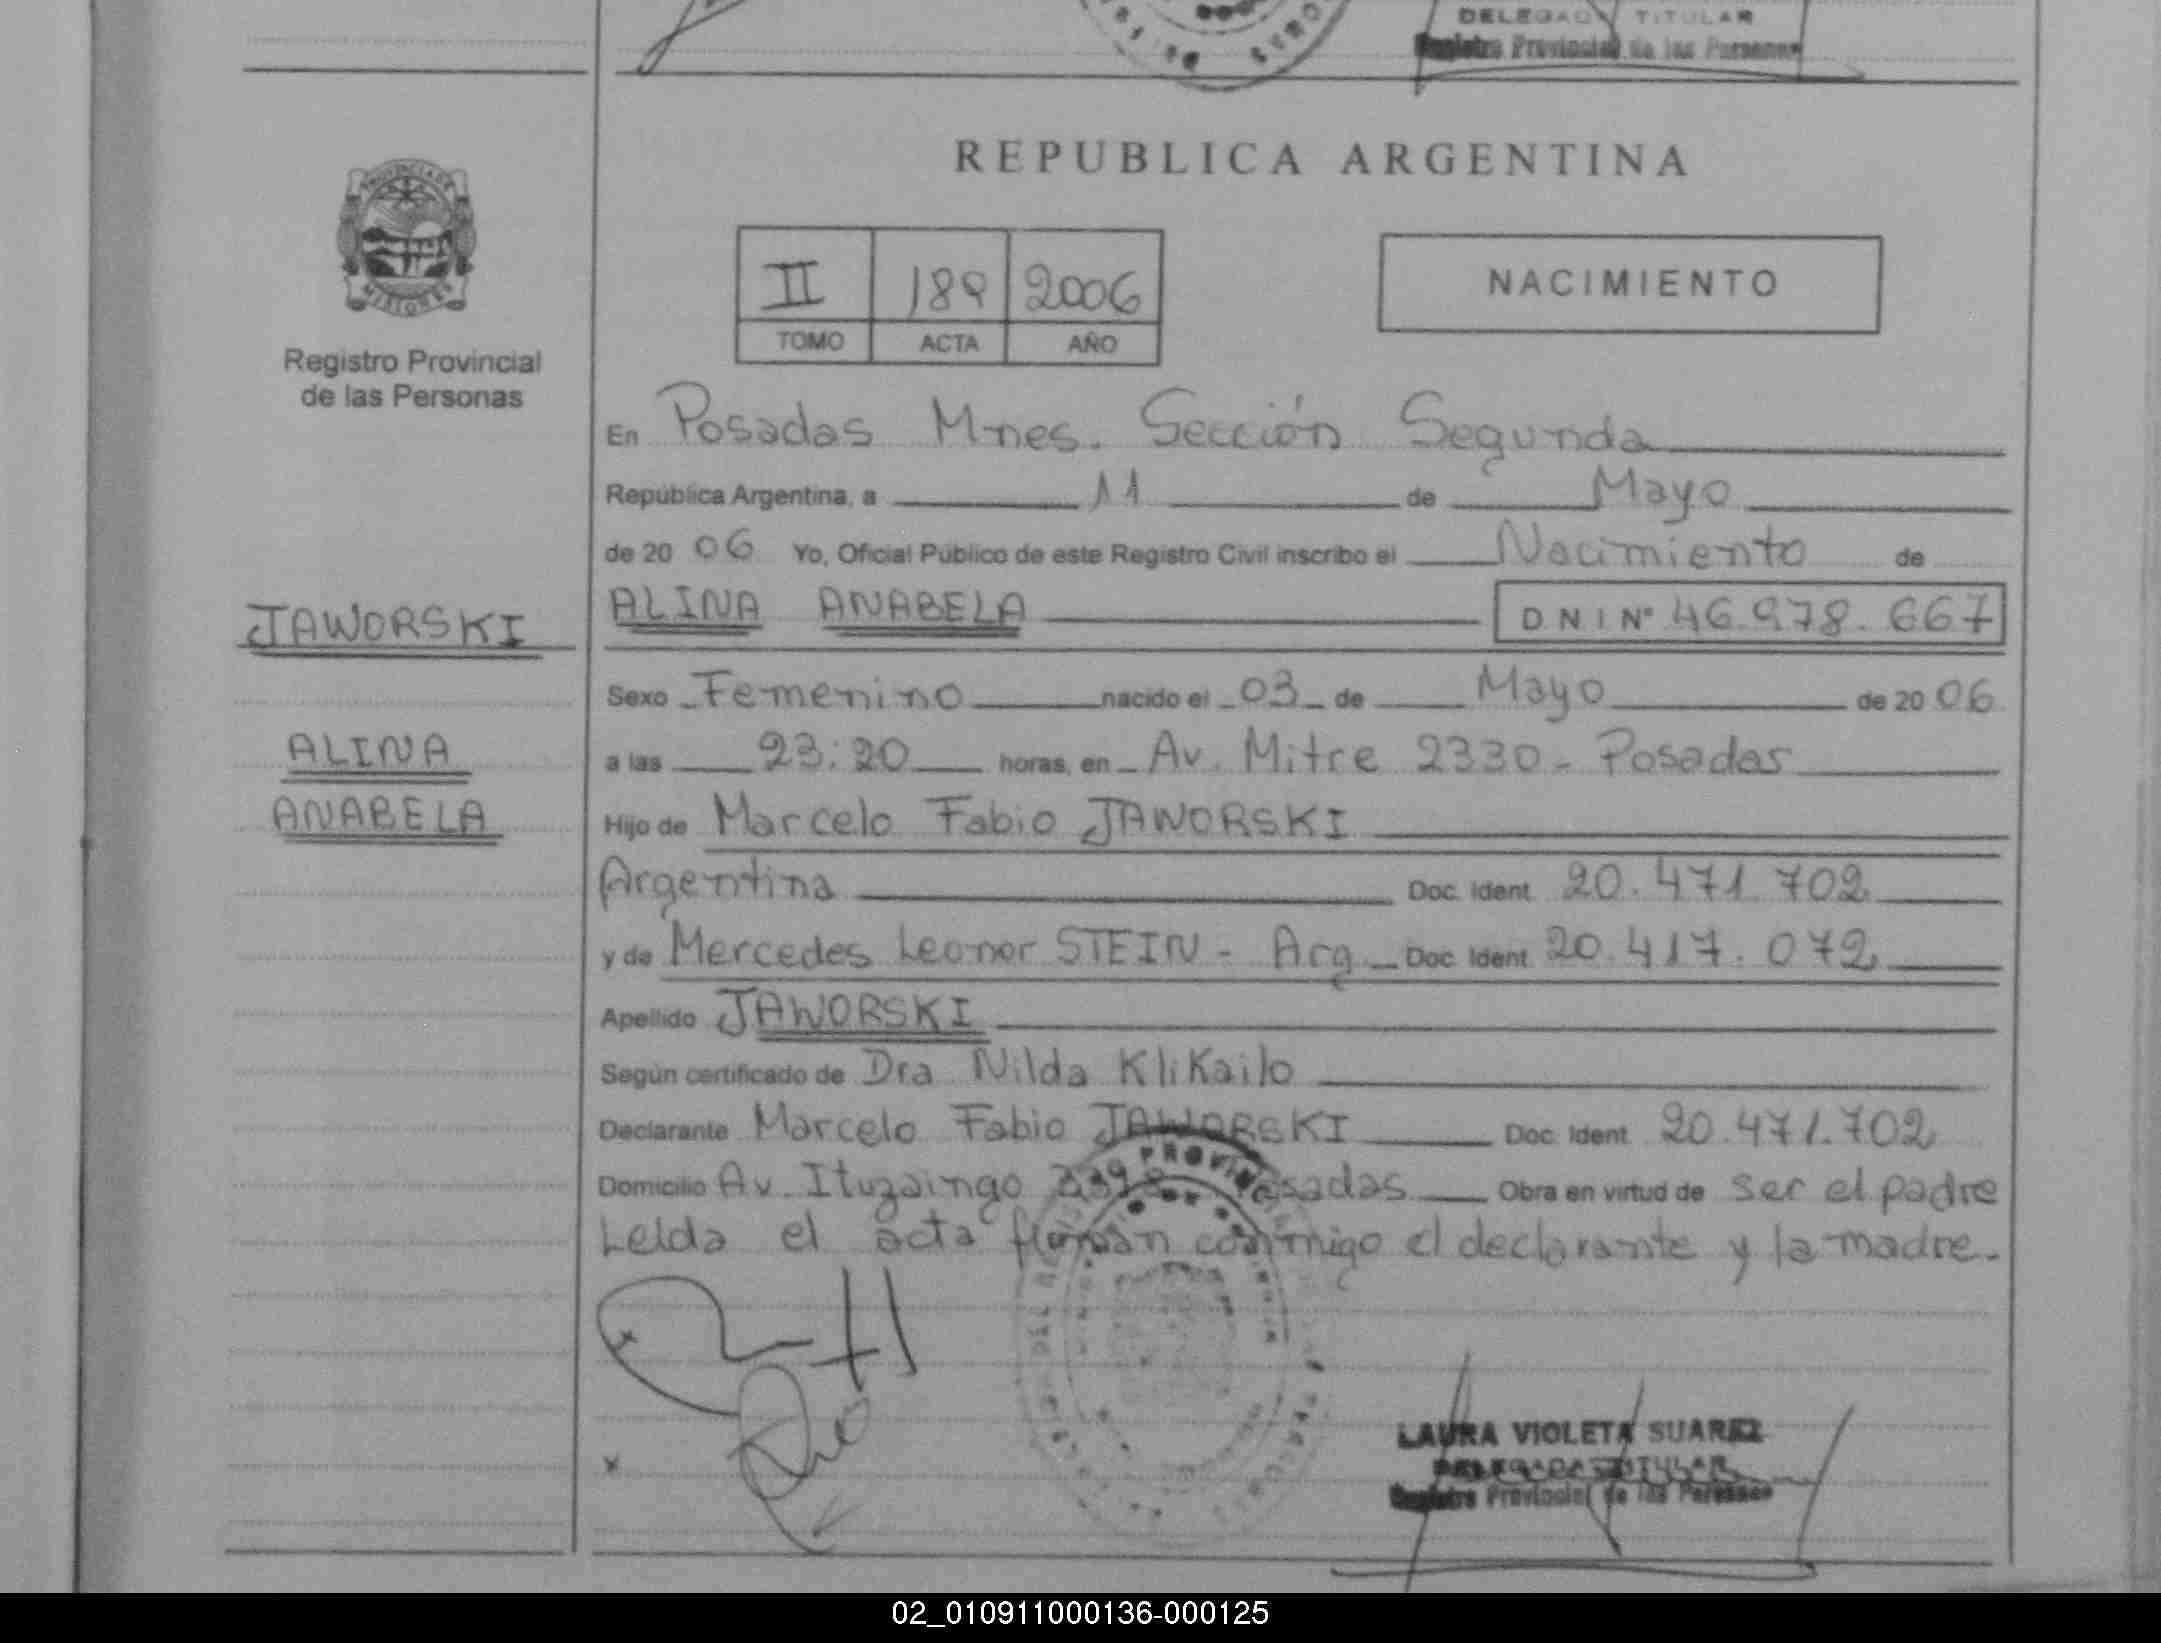 DELEGADA TITULAR
Registro Provincial de las Personas
REPUBLICA ARGENTINA
PROVINCIA DE
MISIONES
Registro Provincial
de las Personas
II 189 2006
TOMO ACTA AÑO
NACIMIENTO
En Posadas Mnes. Sección Segunda
República Argentina, a 11 de Mayo
de 20 06 Yo, Oficial Público de este Registro Civil inscribo el Nacimiento de
JAWORSKI
ALINA ANABELA DNI Nº 46.978.667
Sexo Femenino nacido el 03 de Mayo de 20 06
ALINA
a las 23:20 horas, en Av. Mitre 2330 - Posadas
ANABELA
Hijo de Marcelo Fabio JAWORSKI
Argentina Doc. Ident. 20.471.702
y de Mercedes Leonor STEIN - Arg Doc. Ident. 20.417.072
Apellido JAWORSKI
Según certificado de Dra Nilda Klikailo
Declarante Marcelo Fabio JAWORSKI Doc. Ident. 20.471.702
Domicilio Av. Ituzaingo Posadas Obra en virtud de ser el padre
Leida el acta firman conmigo el declarante y la madre.
LAURA VIOLETA SUAREZ
DELEGADA TITULAR
Registro Provincial de las Personas
02_010911000136-000125